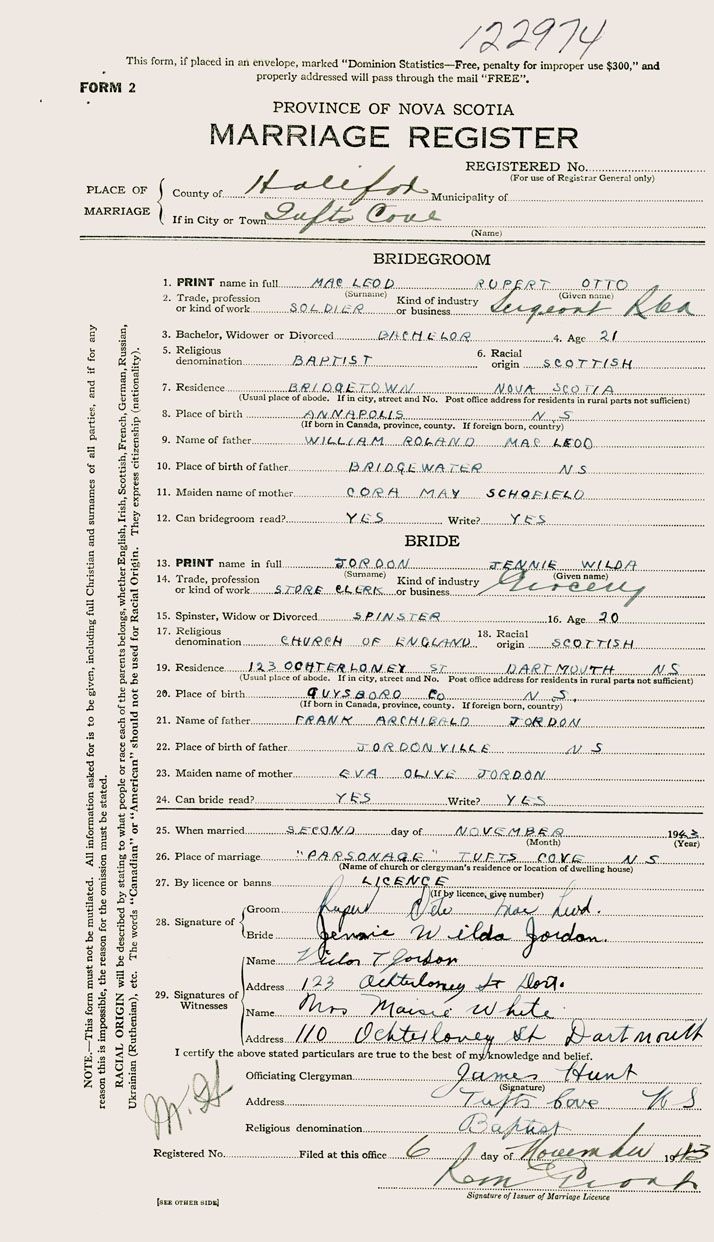 122974
This form, if placed in an envelope, marked "Dominion Statistics—Free, penalty for improper use $300," and
properly addressed will pass through the mail "FREE".
FORM 2
PROVINCE OF NOVA SCOTIA
MARRIAGE REGISTER
REGISTERED No.
(For use of Registrar General only)
PLACE OF MARRIAGE
County of Halifax Municipality of
If in City or Town Tufts Cove
(Name)
BRIDEGROOM
1. PRINT name in full MAC LEOD RUPERT OTTO
(Surname) (Given name)
2. Trade, profession or kind of work SOLDIER Kind of industry or business Sergeant
3. Bachelor, Widower or Divorced BACHELOR 4. Age 21
5. Religious denomination BAPTIST 6. Racial origin SCOTTISH
7. Residence BRIDGETOWN NOVA SCOTIA
(Usual place of abode. If in city, street and No. Post office address for residents in rural parts not sufficient)
8. Place of birth ANNAPOLIS N. S
(If born in Canada, province, county. If foreign born, country)
9. Name of father WILLIAM ROLAND MAC LEOD
10. Place of birth of father BRIDGEWATER N S
11. Maiden name of mother CORA MAY SCHOFIELD
12. Can bridegroom read? YES Write? YES
BRIDE
13. PRINT name in full JORDON JENNIE WILDA
(Surname) (Given name)
14. Trade, profession or kind of work STORE CLERK Kind of industry or business Grocery
15. Spinster, Widow or Divorced SPINSTER 16. Age 20
17. Religious denomination CHURCH OF ENGLAND 18. Racial origin SCOTTISH
19. Residence 123 OCHTERLONEY ST DARTMOUTH N S
(Usual place of abode. If in city, street and No. Post office address for residents in rural parts not sufficient)
20. Place of birth GUYSBORO CO N S.
(If born in Canada, province, county. If foreign born, country)
21. Name of father FRANK ARCHIBALD JORDON
22. Place of birth of father JORDONVILLE N S
23. Maiden name of mother EVA OLIVE JORDON
24. Can bride read? YES Write? YES
25. When married SECOND day of NOVEMBER 1943
(Month) (Year)
26. Place of marriage "PARSONAGE" TUFTS COVE N S
(Name of church or clergyman's residence or location of dwelling house)
27. By licence or banns LICENCE
(If by licence, give number)
28. Signature of
Groom Rupert Otto Mac Leod.
Bride Jennie Wilda Jordon.
29. Signatures of Witnesses
Name Victor T Jordon
Address 123 Ochterloney St Dart.
Name Mrs Maisie White
Address 110 Ochterloney St Dartmouth
I certify the above stated particulars are true to the best of my knowledge and belief.
Officiating Clergyman James Hunt
(Signature)
Address Tufts Cove N S
Religious denomination Baptist
Registered No. Filed at this office 6 day of November 1943
Signature of Issuer of Marriage Licence
[SEE OTHER SIDE]
NOTE.—This form must not be mutilated. All information asked for is to be given, including full Christian and surnames of all parties, and if for any
reason this is impossible, the reason for the omission must be stated.
RACIAL ORIGIN will be described by stating to what people or race each of the parents belongs, whether English, Irish, Scottish, French, German, Russian,
Ukrainian (Ruthenian), etc. The words "Canadian" or "American" should not be used for Racial Origin. They express citizenship (nationality).